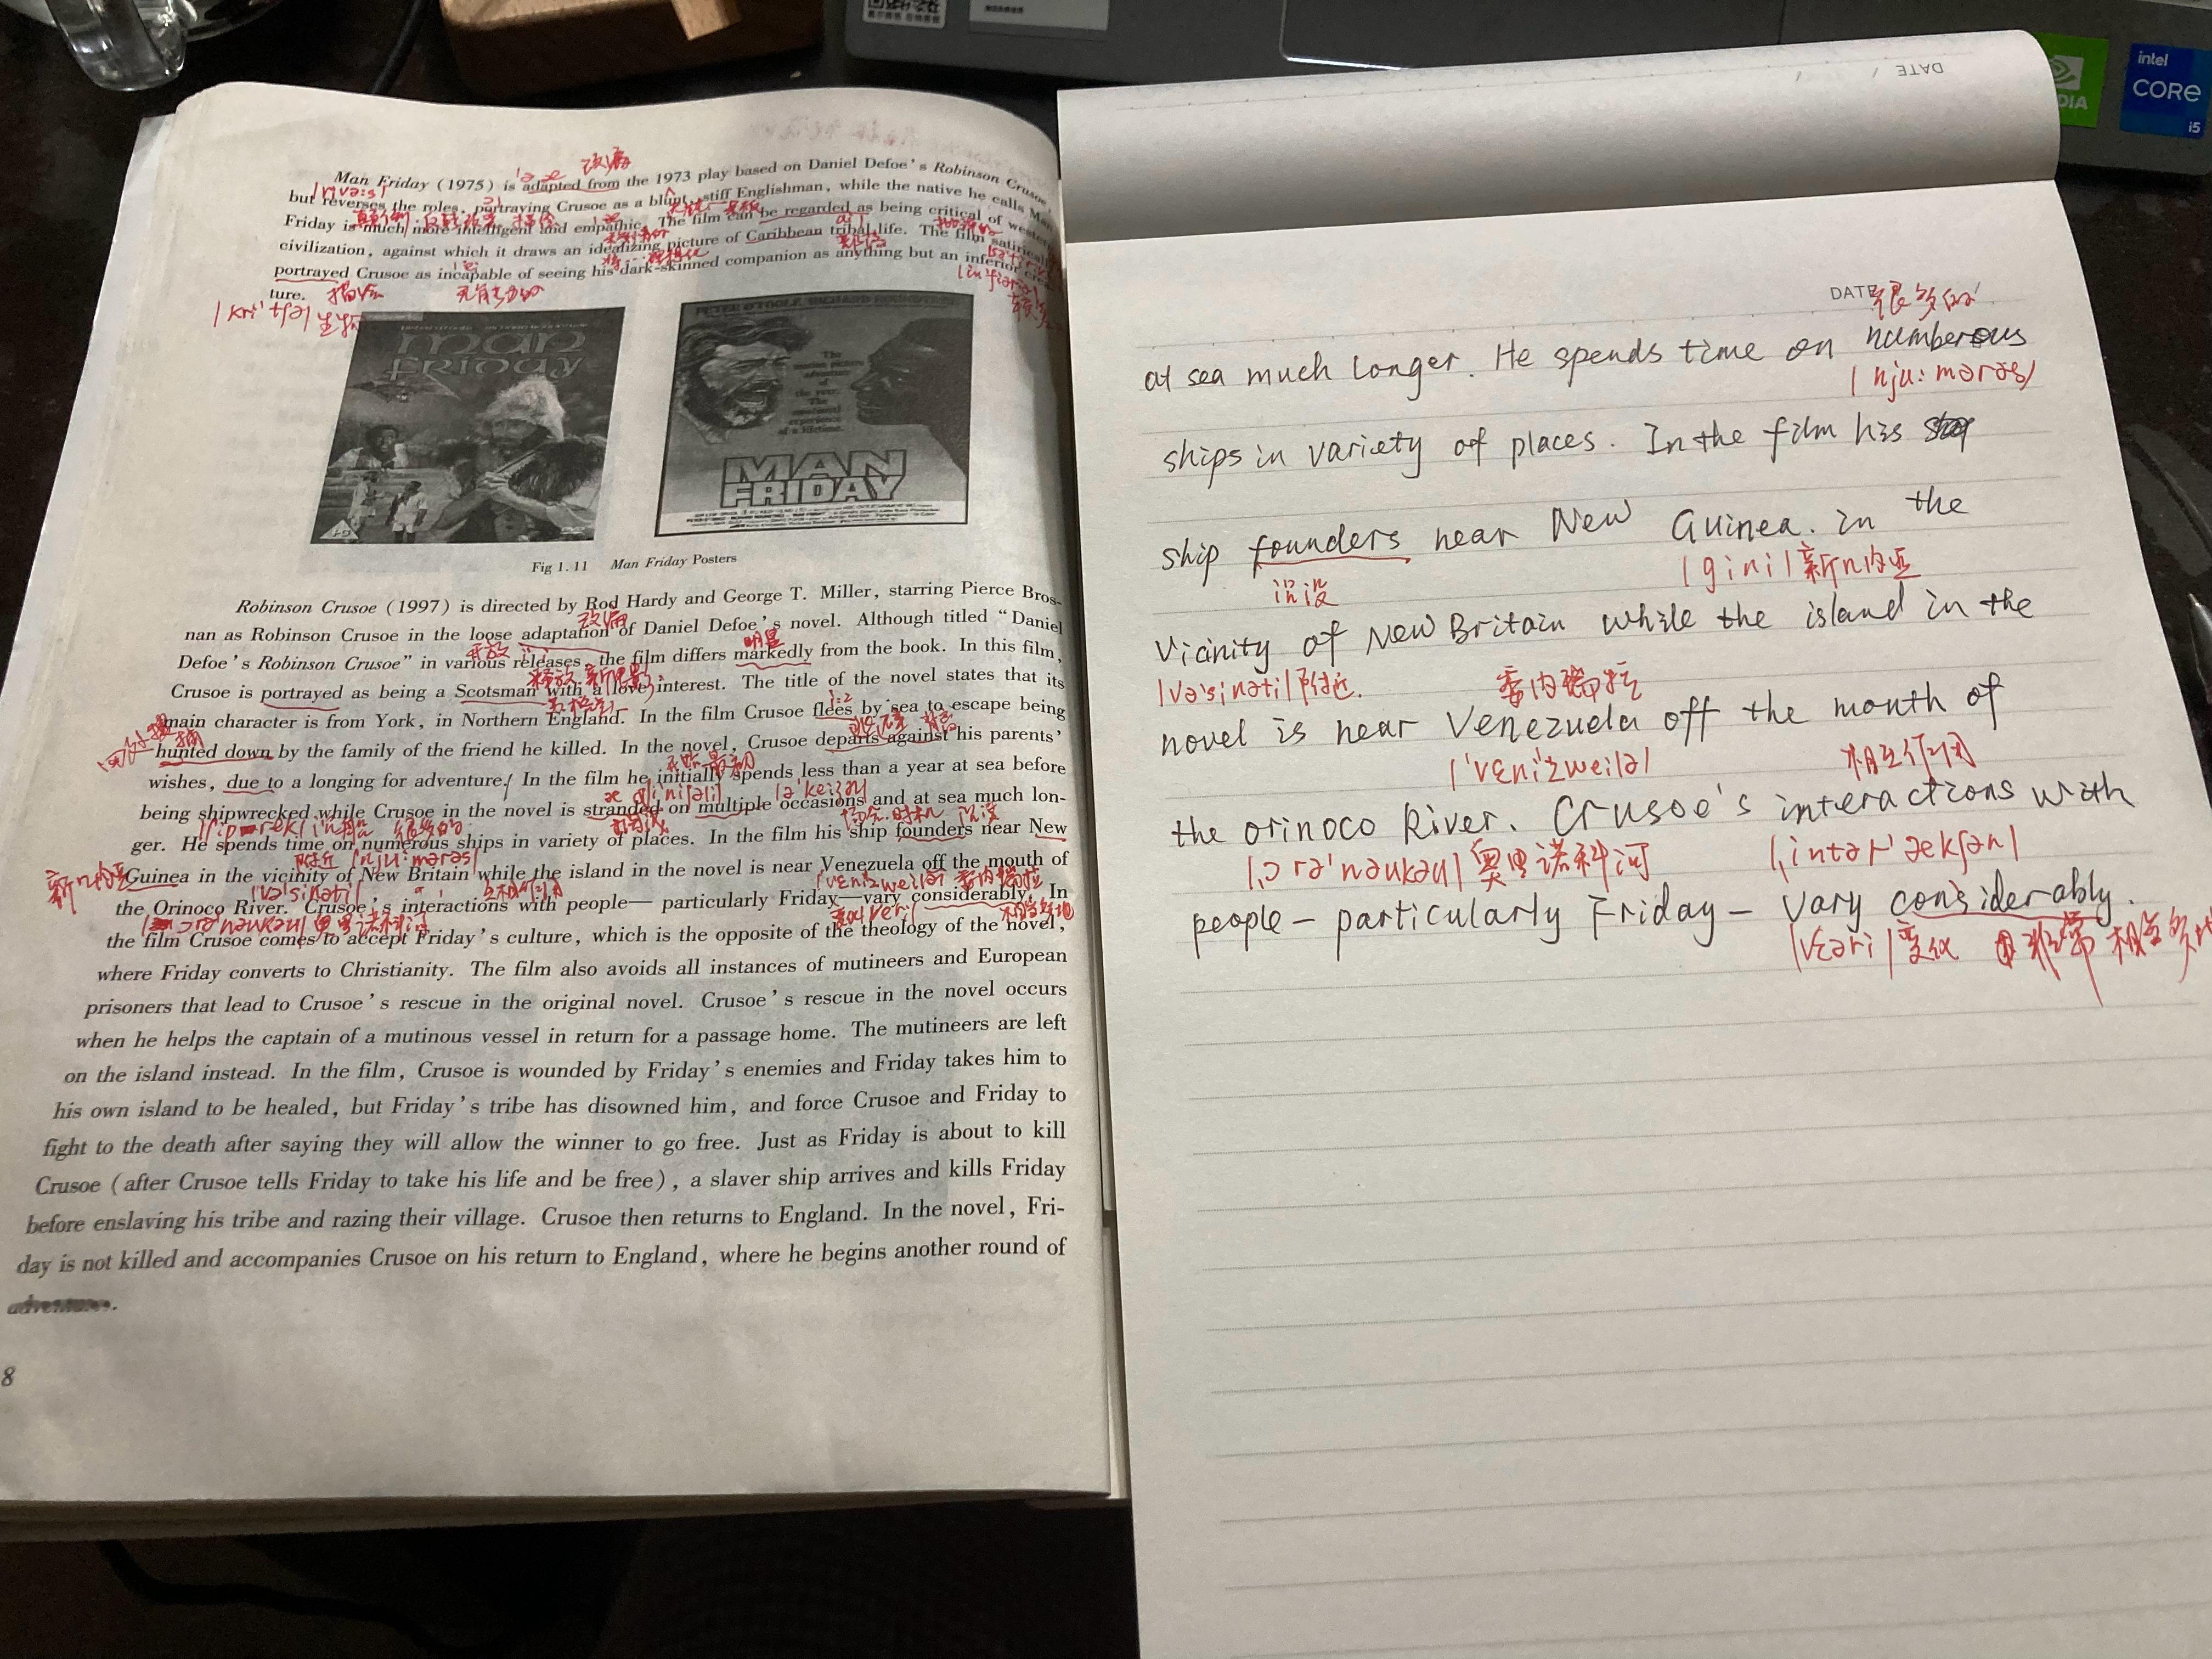 Man Friday (1975) is adapted from the 1973 play based on Daniel Defoe's Robinson Crusoe,
but reverses the roles, portraying Crusoe as a blunt, stiff Englishman, while the native he calls Man
Friday is much more intelligent and empathic. The film can be regarded as being critical of western
civilization, against which it draws an idealizing picture of Caribbean tribal life. The film satirically
portrayed Crusoe as incapable of seeing his dark-skinned companion as anything but an inferior crea-
ture. 描绘
|kri'tʃə| 生物
MAN
FRIDAY
PETER O'TOOLE, RICHARD ROUNDTREE
The
motion picture
adventure
of
the year.
The
emotional
experience
of a lifetime.
MAN
FRIDAY
Fig 1.11 Man Friday Posters
Robinson Crusoe (1997) is directed by Rod Hardy and George T. Miller, starring Pierce Bros-
nan as Robinson Crusoe in the loose adaptation of Daniel Defoe's novel. Although titled "Daniel
改编
明显
Defoe's Robinson Crusoe" in various releases, the film differs markedly from the book. In this film,
Crusoe is portrayed as being a Scotsman with a love interest. The title of the novel states that its
main character is from York, in Northern England. In the film Crusoe flees by sea to escape being
hunted down by the family of the friend he killed. In the novel, Crusoe departs against his parents'
wishes, due to a longing for adventure. In the film he initially spends less than a year at sea before
being shipwrecked while Crusoe in the novel is stranded on multiple occasions and at sea much lon-
ger. He spends time on numerous ships in variety of places. In the film his ship founders near New
附近 |nju:mərəs|
Guinea in the vicinity of New Britain while the island in the novel is near Venezuela off the mouth of
the Orinoco River. Crusoe's interactions with people— particularly Friday—vary considerably. In
the film Crusoe comes to accept Friday's culture, which is the opposite of the theology of the novel,
where Friday converts to Christianity. The film also avoids all instances of mutineers and European
prisoners that lead to Crusoe's rescue in the original novel. Crusoe's rescue in the novel occurs
when he helps the captain of a mutinous vessel in return for a passage home. The mutineers are left
on the island instead. In the film, Crusoe is wounded by Friday's enemies and Friday takes him to
his own island to be healed, but Friday's tribe has disowned him, and force Crusoe and Friday to
fight to the death after saying they will allow the winner to go free. Just as Friday is about to kill
Crusoe (after Crusoe tells Friday to take his life and be free), a slaver ship arrives and kills Friday
before enslaving his tribe and razing their village. Crusoe then returns to England. In the novel, Fri-
day is not killed and accompanies Crusoe on his return to England, where he begins another round of
adventures.
8
DATE / /
DATE
很多的
at sea much longer. He spends time on numberous
|nju:mərəs/
ships in variety of places. In the film his
ship founders near New Guinea. in the
沉没 |gini| 新几内亚
Vicinity of New Britain while the island in the
|və'sinəti| 附近. 委内瑞拉
novel is near Venezuela off the month of
|'vɛni'zweilə| 相互作用
the orinoco River. Crusoe's interactions with
|,ɔrə'nəukəu| 奥里诺科河 |,intər'ækʃən|
people – particularly Friday – vary considerably.
|vɛəri| 变化 非常 相当多地
intel
CORE
i5